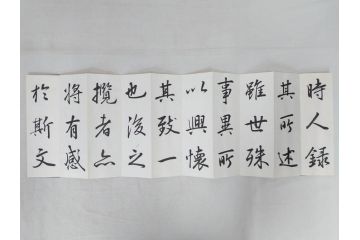 時人錄
其所述
雖世殊
事異所
以興懷
其致一
也後之
攬者亦
將有感
於斯文